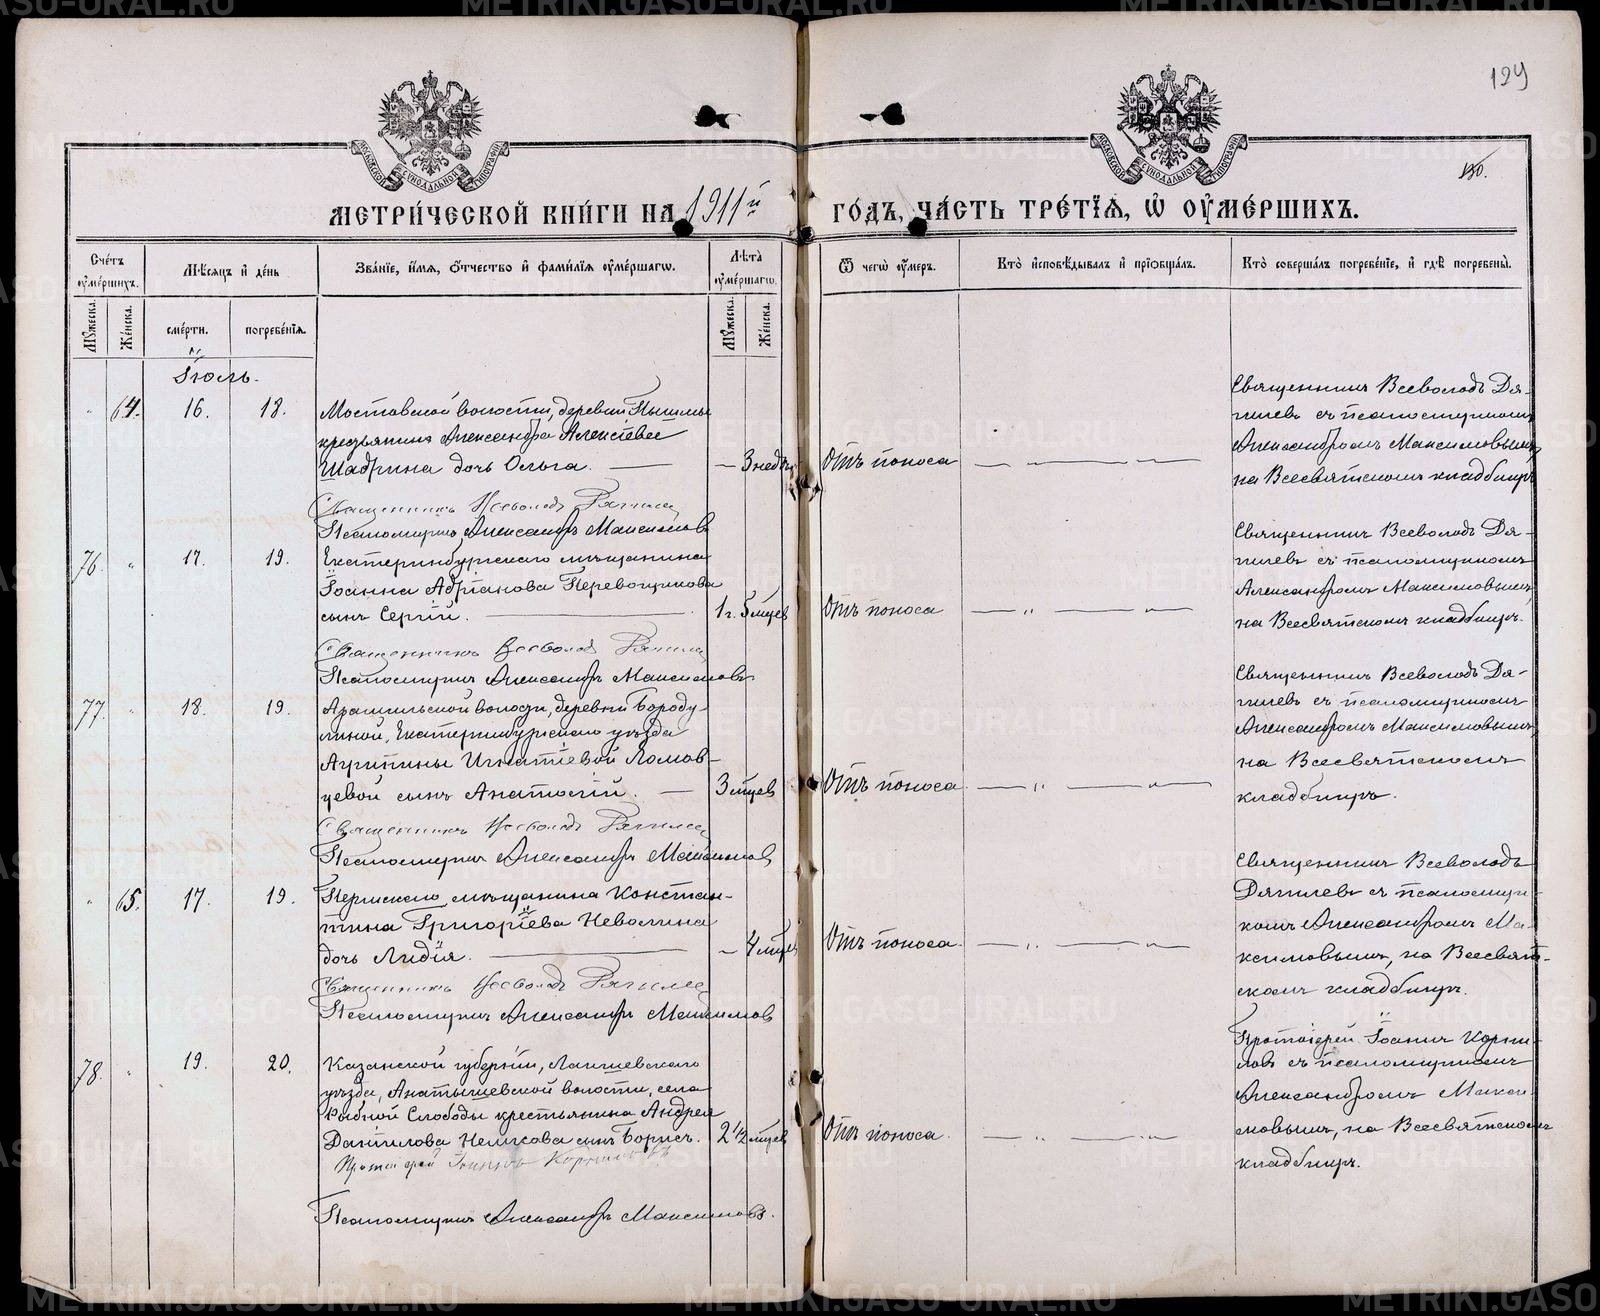 129
130.
МОСКОВСКОЙ СѴНОДАЛЬНОЙ ТИПОГРАФІИ
МОСКОВСКОЙ СѴНОДАЛЬНОЙ ТИПОГРАФІИ
МЕТРИ́ЧЕСКОЙ КНИ́ГИ НА 1911й ГО́ДЪ, ЧА́СТЬ ТРЕ́ТІѦ, Ѽ ОУМЕ́РШИХЪ.
Сче́тъ оуме́ршихъ.
Мѣ́сяцъ и де́нь
Зва́ніе, и́мя, о́тчество и фами́лія оуме́ршагѡ.
Лѣта̀ оуме́ршагѡ.
Ѿ чегѡ̀ оу́меръ.
Кто̀ исповѣ́дывалъ и пріобща́лъ.
Кто̀ соверша́лъ погребе́ніе, и гдѣ̀ погребены̀.
Мꙋ́жеска.
Же́нска.
сме́рти.
погребе́нія.
Мꙋ́жеска.
Же́нска.
Іюль.
" 64. 16. 18.
Мостовской волости, деревни Пышмы
крестьянина Александра Алексѣева
Шадрина дочь Ольга. —
— 3 недѣл
Отъ поноса
— " — " —
Священникъ Всеволодъ Дя-
гилевъ съ псаломщикомъ
Александромъ Максимовымъ,
на Всесвятскомъ кладбищѣ
Священникъ Всеволодъ Дягилев
Псаломщикъ Александръ Максимовъ
76. " 17. 19.
Екатеринбургскаго мѣщанина
Іоанна Адріанова Перевощикова
сынъ Сергій. —
1 г. 5 мцев
Отъ поноса
— " — " —
Священникъ Всеволодъ Дя-
гилевъ съ псаломщикомъ
Александромъ Максимовымъ,
на Всесвятскомъ кладбищѣ.
Священникъ Всеволодъ Дягилев
Псаломщикъ Александръ Максимовъ
77. " 18. 19.
Арамильской волости, деревни Бороду-
линой, Екатеринбургскаго уѣзда
Агрипины Игнатіевой Ломов-
цевой сынъ Анатолій. —
3 мцев
Отъ поноса
— " — " —
Священникъ Всеволодъ Дя-
гилевъ съ псаломщикомъ
Александромъ Максимовымъ,
на Всесвятскомъ
кладбищѣ.
Священникъ Всеволодъ Дягилев
Псаломщикъ Александръ Максимовъ
" 65. 17. 19.
Пермскаго мѣщанина Констан-
тина Григоріева Неволина
дочь Лидія. —
— 4 мцев
Отъ поноса.
— " — " —
Священникъ Всеволодъ
Дягилевъ съ псаломщи-
комъ Александромъ Ма-
ксимовымъ, на Всесвят-
скомъ кладбищѣ.
Священникъ Всеволодъ Дягилев
Псаломщикъ Александръ Максимов
78. " 19. 20.
Казанской губерніи, Лаишевскаго
уѣзда, Анатышевской волости, села
Рыбной Слободы крестьянина Андрея
Данилова Немкова сынъ Борисъ.
2 1/2 мцев
Отъ поноса.
— " — " —
Протоіерей Іоаннъ Корни-
ловъ съ псаломщикомъ
Александромъ Макси-
мовымъ, на Всесвятскомъ
кладбищѣ.
Протоіерей Іоаннъ Корниловъ
Псаломщикъ Александръ Максимовъ.
METRIKI.GASO-URAL.RU